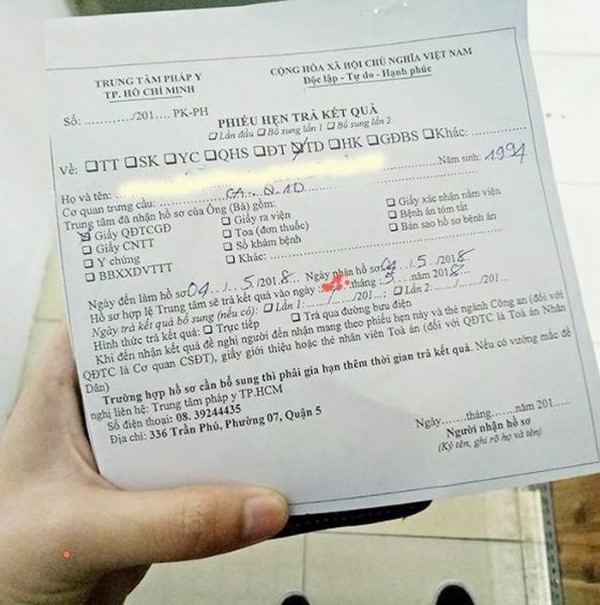 TRUNG TÂM PHÁP Y
TP. HỒ CHÍ MINH
CỘNG HÒA XÃ HỘI CHỦ NGHĨA VIỆT NAM
Độc lập - Tự do - Hạnh phúc
Số: ............/201..... PK-PH
PHIẾU HẸN TRẢ KẾT QUẢ
☐ Lần đầu ☐ Bổ sung lần 1 ☐ Bổ sung lần 2
Về: ☐TT ☐SK ☐YC ☐QHS ☐ĐT ☑TD ☐HK ☐GĐBS ☐Khác: ..................
Họ và tên: Năm sinh: 1994
Cơ quan trưng cầu: CA
Trung tâm đã nhận hồ sơ của Ông (Bà) gồm:
☑ Giấy QĐTCGĐ ☐ Giấy ra viện ☐ Giấy xác nhận nằm viện
☐ Giấy CNTT ☐ Toa (đơn thuốc) ☐ Bệnh án tóm tắt
☐ Y chứng ☐ Sổ khám bệnh ☐ Bản sao hồ sơ bệnh án
☐ BBXXDVTTT ☐ Khác:
Ngày đến làm hồ sơ 04/5/2018. Ngày nhận hồ sơ 04/5/2018
Hồ sơ hợp lệ Trung tâm sẽ trả kết quả vào ngày: tháng 5 năm 2018
Ngày trả kết quả bổ sung (nếu có): ☐ Lần 1: ....../....../201...; ☐ Lần 2: ....../....../201...
Hình thức trả kết quả: ☐ Trực tiếp ☐ Trả qua đường bưu điện
Khi đến nhận kết quả đề nghị người đến nhận mang theo phiếu hẹn này và thẻ ngành Công an (đối với
QĐTC là Cơ quan CSĐT), giấy giới thiệu hoặc thẻ nhân viên Toà án (đối với QĐTC là Toà án Nhân
Dân)
Trường hợp hồ sơ cần bổ sung thì phải gia hạn thêm thời gian trả kết quả. Nếu có vướng mắc đề
nghị liên hệ: Trung tâm pháp y TP.HCM
Số điện thoại: 08. 39244435
Địa chỉ: 336 Trần Phú, Phường 07, Quận 5
Ngày.......tháng.......năm 201....
Người nhận hồ sơ
(Ký tên, ghi rõ họ và tên)